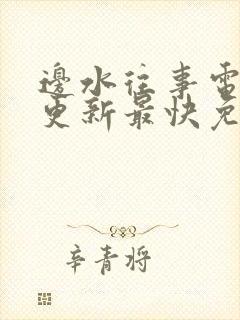 邊水往事電
更新最快免
辛青将